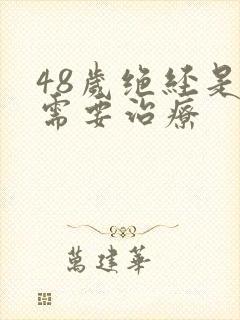 48歲绝经是
需要治療
萬建華